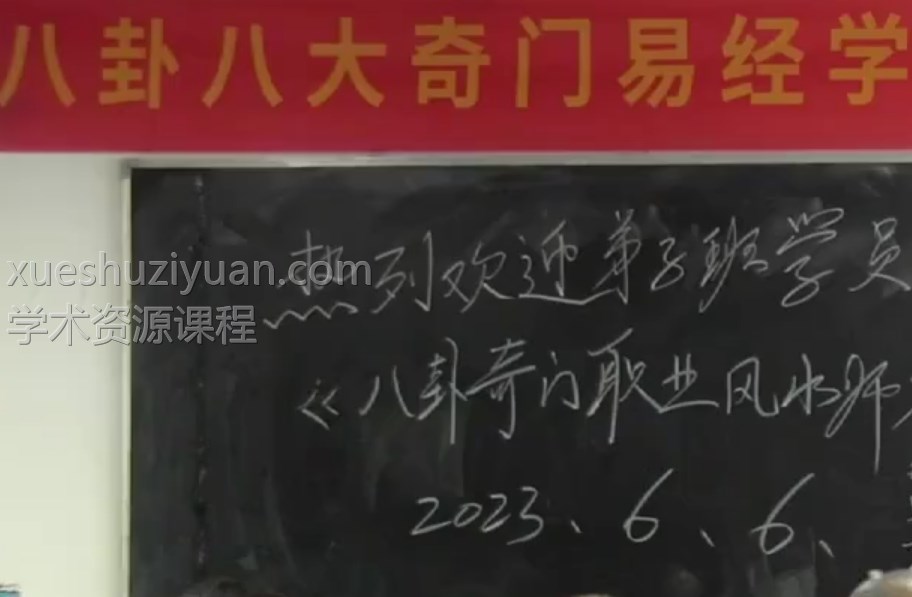 八卦八大奇门易经学
热列欢迎弟子班学员
《八卦奇门职业风水师
2023、6、6、
xueshuziyuan.com
学术资源课程